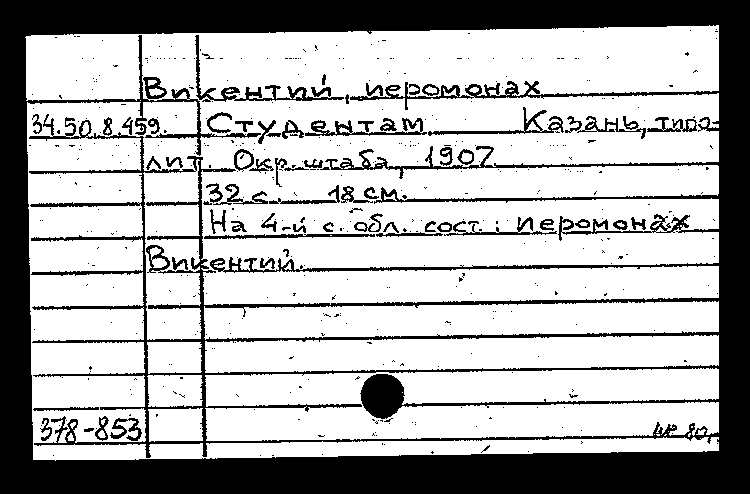 Викентий, иеромонах
34.50.8.459. Студентам Казань, типо-
лит. Окр. штаба, 1907.
32 с. 18 см.
На 4-й с. обл. сост.: иеромонах
Викентий.
378-853 80,